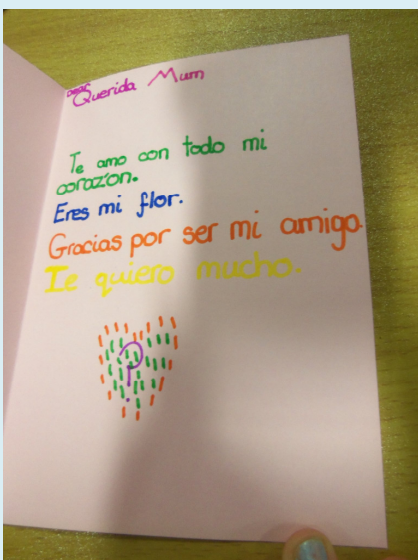 Dear
Querida Mum
Te amo con todo mi
corazón.
Eres mi flor.
Gracias por ser mi amigo.
Te quiero mucho.
?